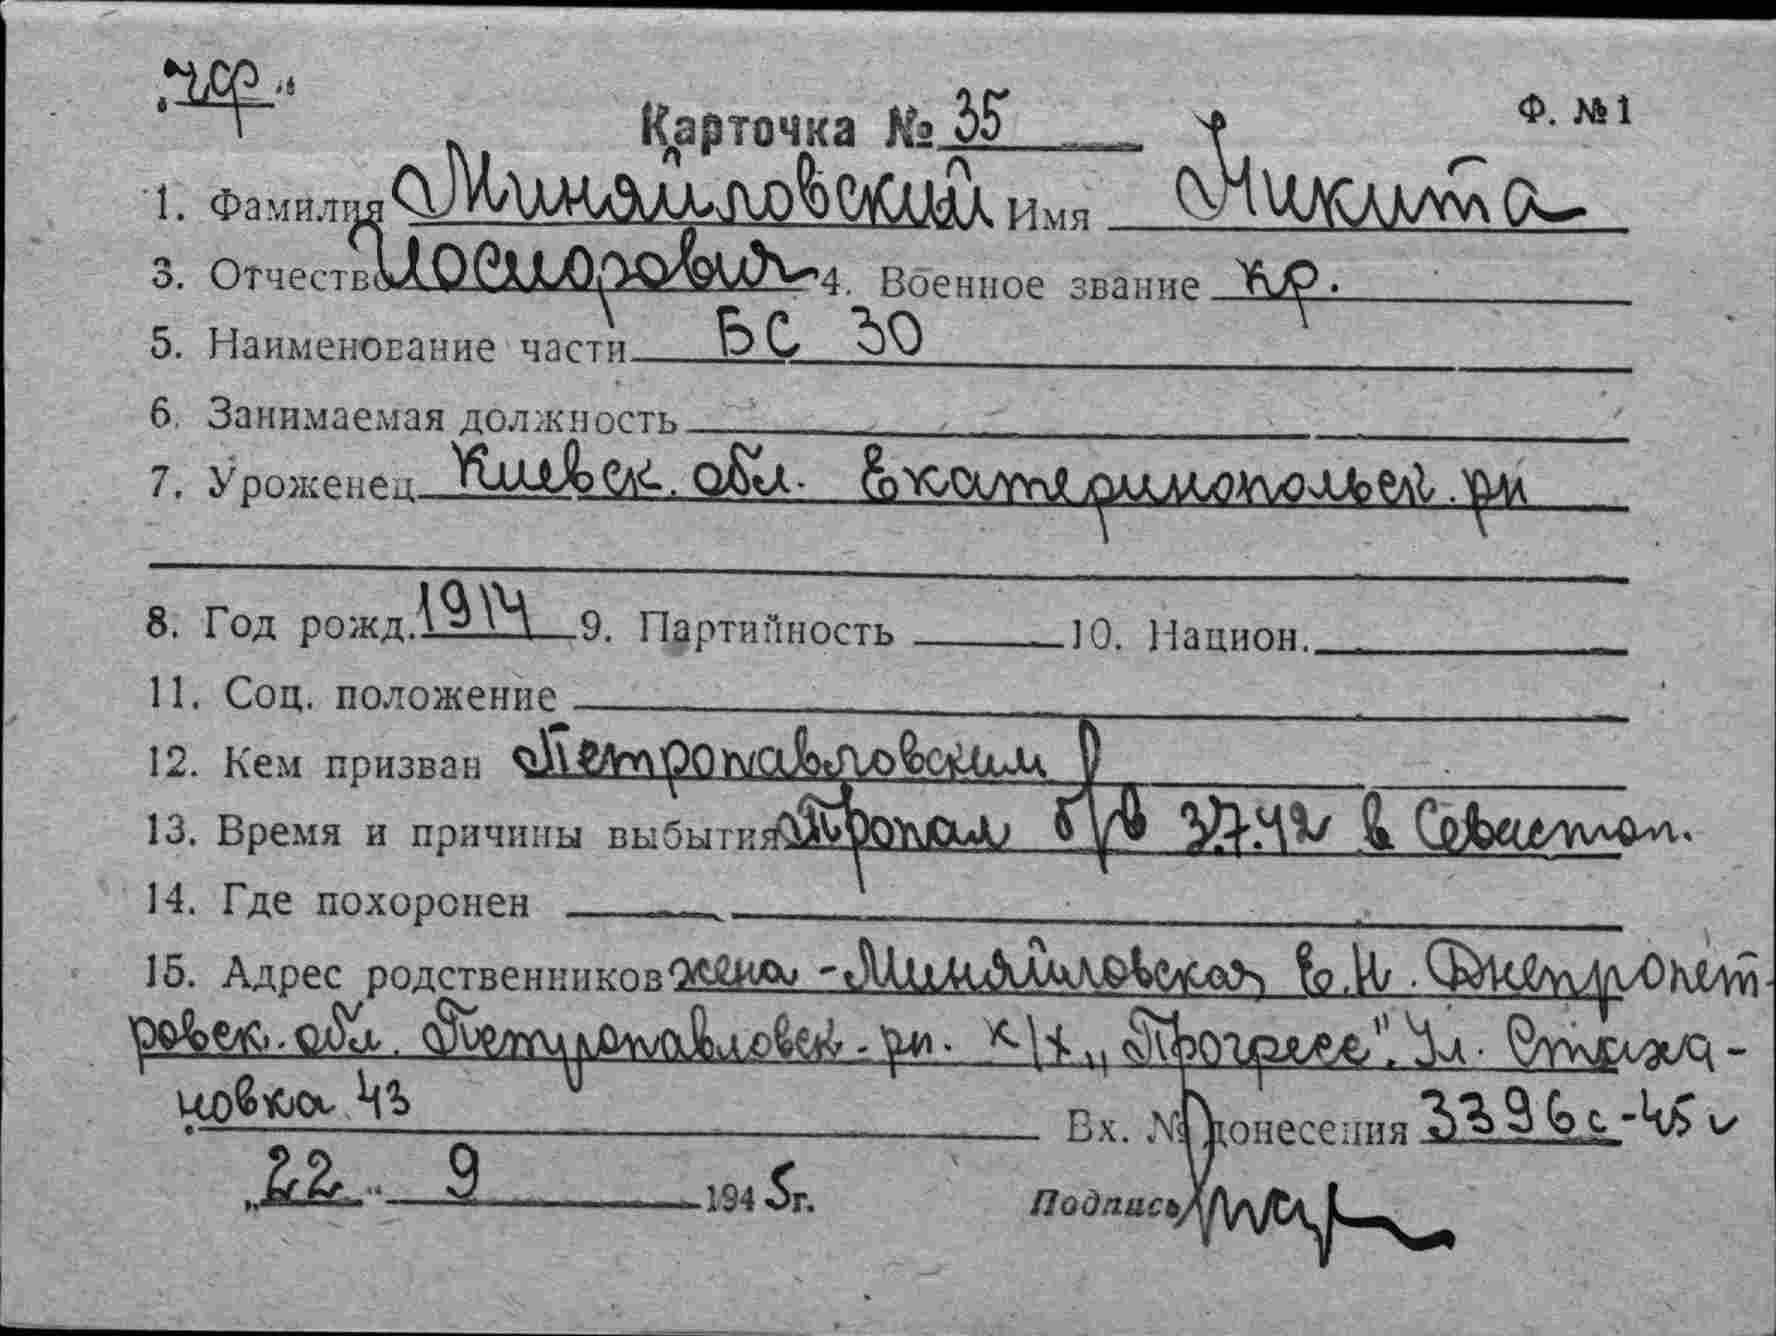 "чф"
Карточка № 35
Ф. № 1
1. Фамилия Миняйловский Имя Никита
3. Отчество Иосиорович 4. Военное звание кр.
5. Наименование части БС 30
6. Занимаемая должность
7. Уроженец Киевск. обл. Екатеринопольск. рн
8. Год рожд. 1914 9. Партийность 10. Национ.
11. Соц. положение
12. Кем призван Петропавловским
13. Время и причины выбытия Пропал б/в 3.7.42 в Севастоп.
14. Где похоронен
15. Адрес родственников жена - Миняйловская Е.И. Днепропет-
ровск. обл. Петропавловск. рн. к/х „Прогресс". Ул. Стаха-
новка 43
Вх. № донесения 3396с-45
„22" 9 1945г. Подпись